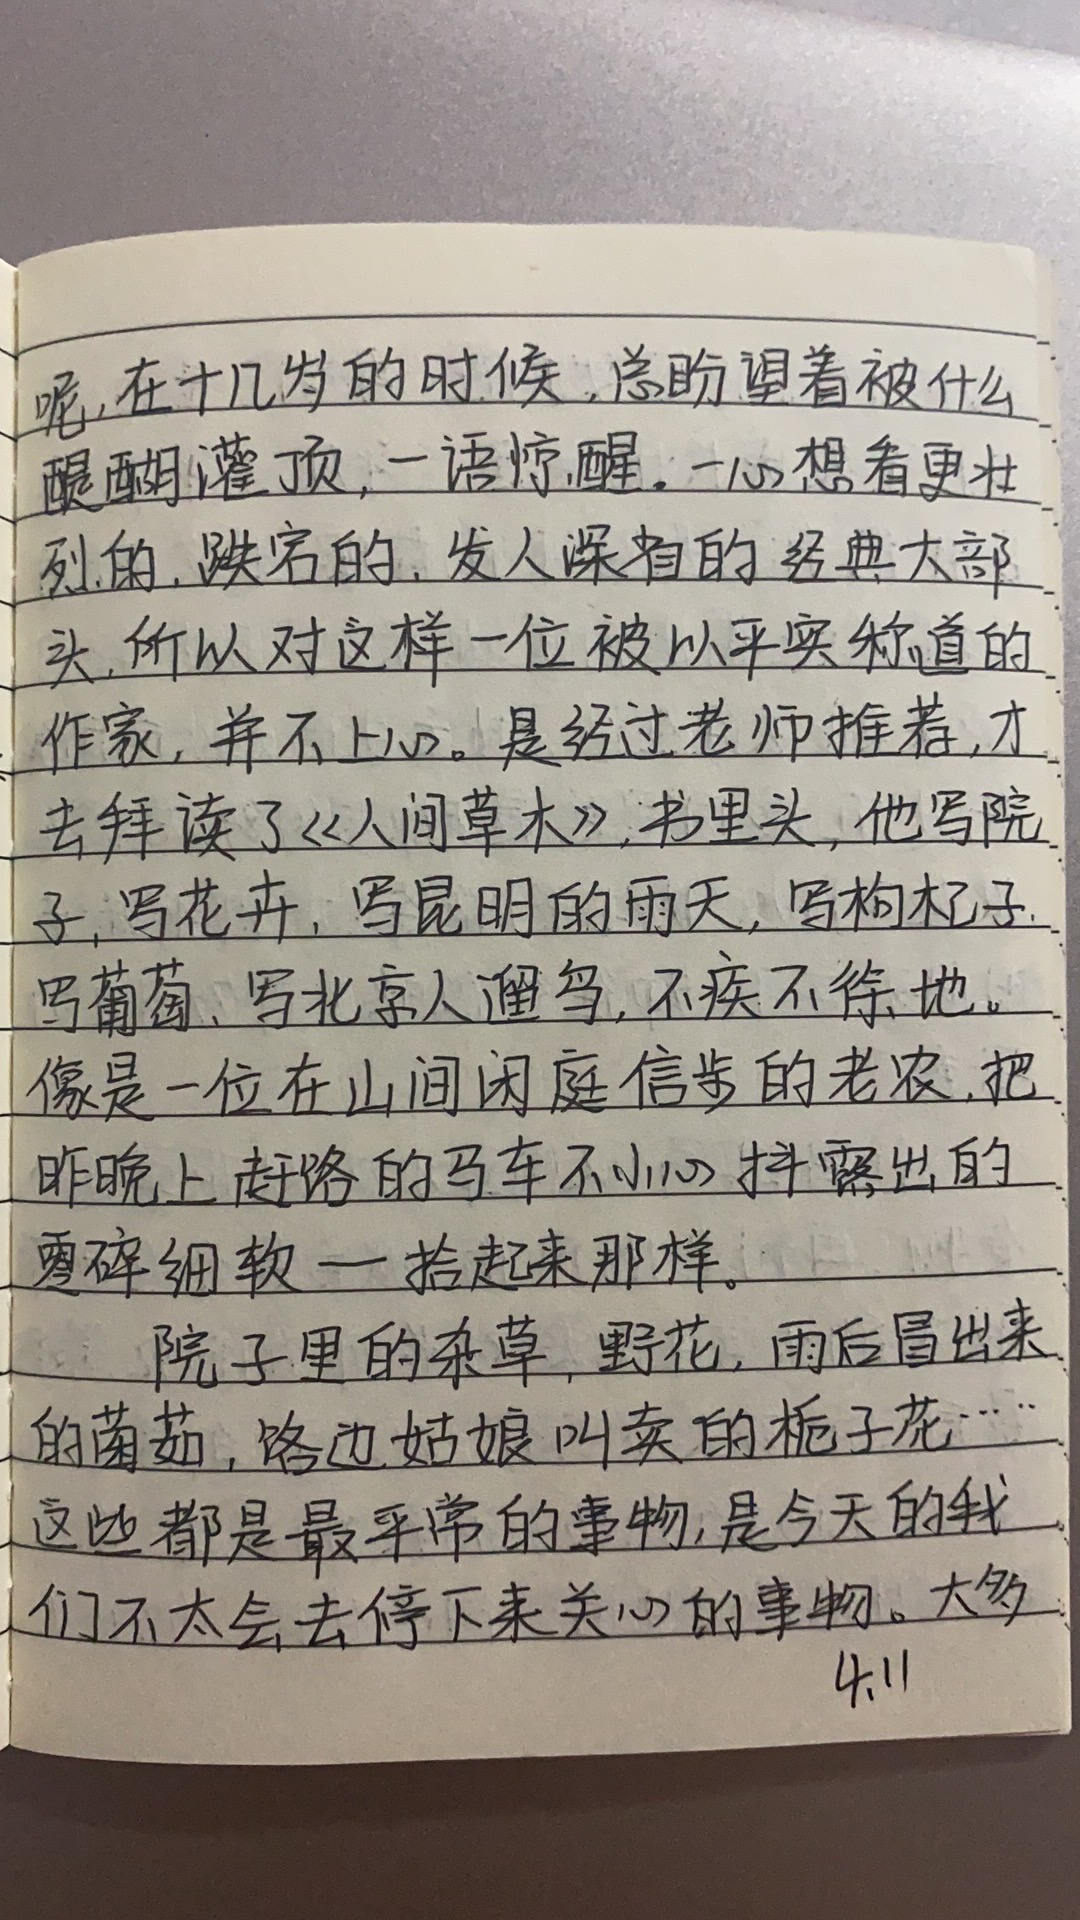 呢,在十几岁的时候,总盼望着被什么
醍醐灌顶,一语惊醒。一心想看更壮
烈的,跌宕的,发人深省的经典大部
头,所以对这样一位被以平实称道的
作家,并不上心。是经过老师推荐,才
去拜读了《人间草木》,书里头,他写院
子,写花卉,写昆明的雨天,写枸杞子,
写葡萄、写北京人遛鸟,不疾不徐地。
像是一位在山间闲庭信步的老农,把
昨晚上赶路的马车不小心抖露出的
零碎细软一一拾起来那样。
院子里的杂草,野花,雨后冒出来
的菌茹,路边姑娘叫卖的栀子花……
这些都是最平常的事物,是今天的我
们不太会去停下来关心的事物。大多
4.11